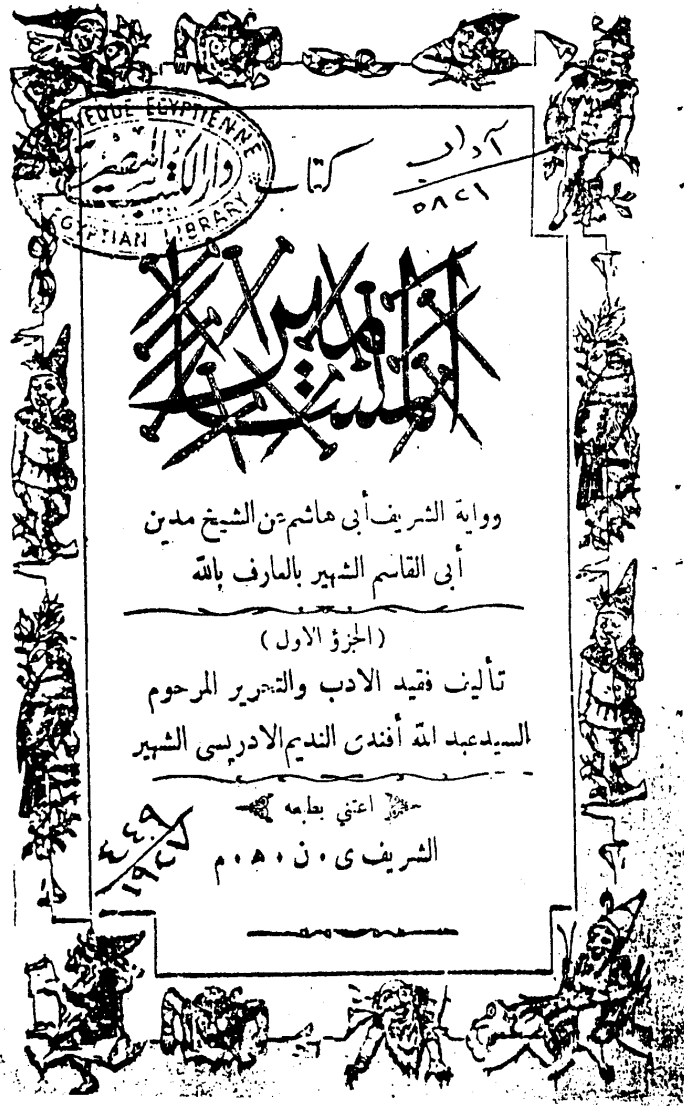 BIBLIOTHEQUE EGYPTIENNE
دار الكتب المصرية
EGYPTIAN LIBRARY
آداب
٥٨٢١
كتاب
المسامير
رواية الشريف أبى هاشم عن الشيخ مدين
أبى القاسم الشهير بالعارف بالله
(الجزؤ الاول)
تأليف فقيد الادب والتحرير المرحوم
السيد عبد الله أفندى النديم الادريسى الشهير
اعتني بطبعه
الشريف ى ٠ ن ٠ ه ٠ م